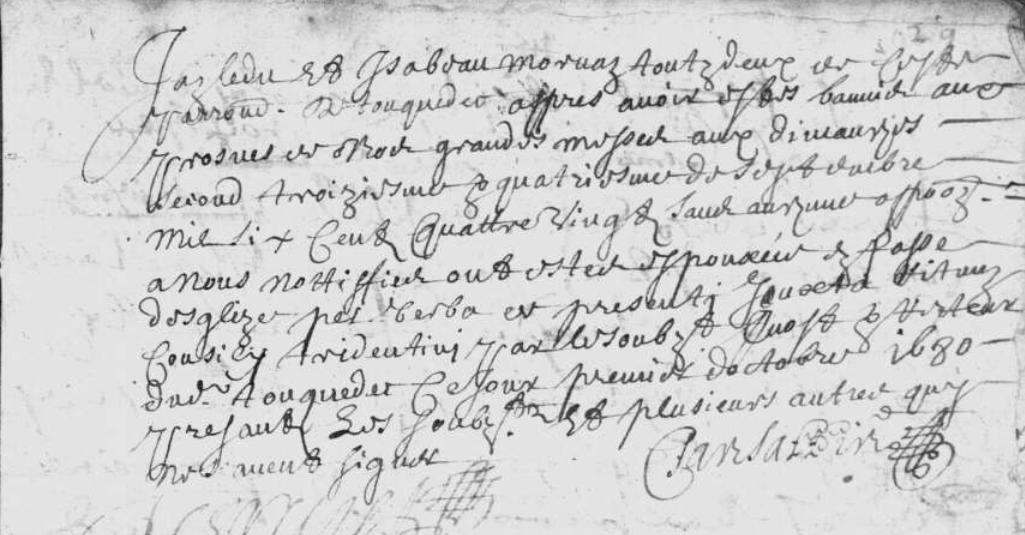 29
Jan ledu Et Isabeau moruan toutz deux de ceste
parrouë. de tonquedec appres avoir estes bannie aux
prosnes de nos grandes messes aux dimanches
second troiziesme & quatriesme de septembre
mil six centz quattre vingtz sans aucune oppoõn.
a nous nottiffiee ont estes espousée en fasse
desglize per verba de presenti Juxta ritum
consily tridentiny par le soubzst
dud. tonquedec ce Jour premier doctobre 1680
presantz Les soubzsts. Et plusieurs autres quy
ne signet